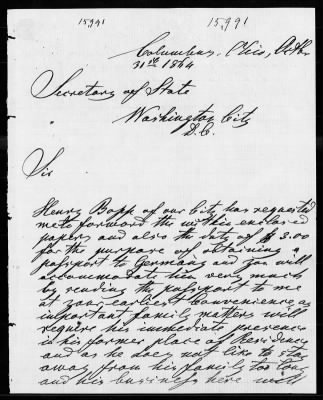 15,991 15,991
Columbus, Ohio, Octbr
31st 1864
Secretary of State
Washington City
D.C.
Sir
Henry Bopp of our City has requested
me to forward the within enclosed
papers and also the duty of $ 3.00
for the purpose of obtaining a
passport to Germany and you will
accommodate him very much
by sending the passport to me
at your earliest convenience, as
important family matters will
require his immediate presence
in his former place of Residence
and as he does not like to stay
away from his family too long
and his business here will